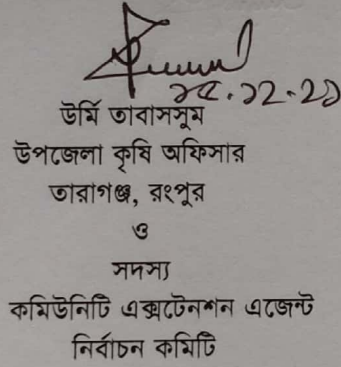 ২৫.১২.২১
উর্মি তাবাসসুম
উপজেলা কৃষি অফিসার
তারাগঞ্জ, রংপুর
ও
সদস্য
কমিউনিটি এক্সটেনশন এজেন্ট
নির্বাচন কমিটি